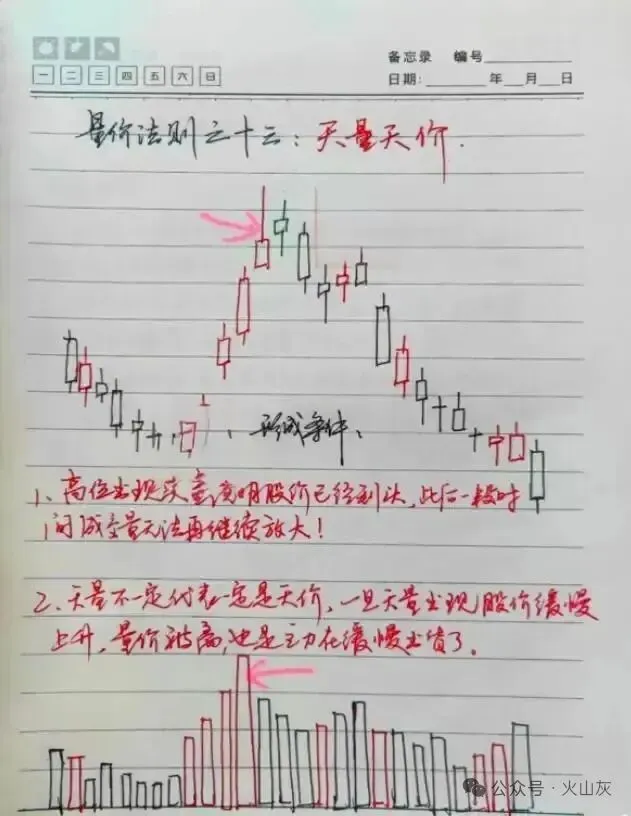 备忘录 编号
一 二 三 四 五 六 日
日期: 年 月 日
量价法则之十三:天量天价.
形成条件、
1、高位出现天量说明股价已经到头,此后一段时
间成交量无法再继续放大!
2、天量不一定代表一定是天价,一旦天量出现股价缓慢
上升,量价背离,也是主力在缓慢出货了.
公众号·火山灰